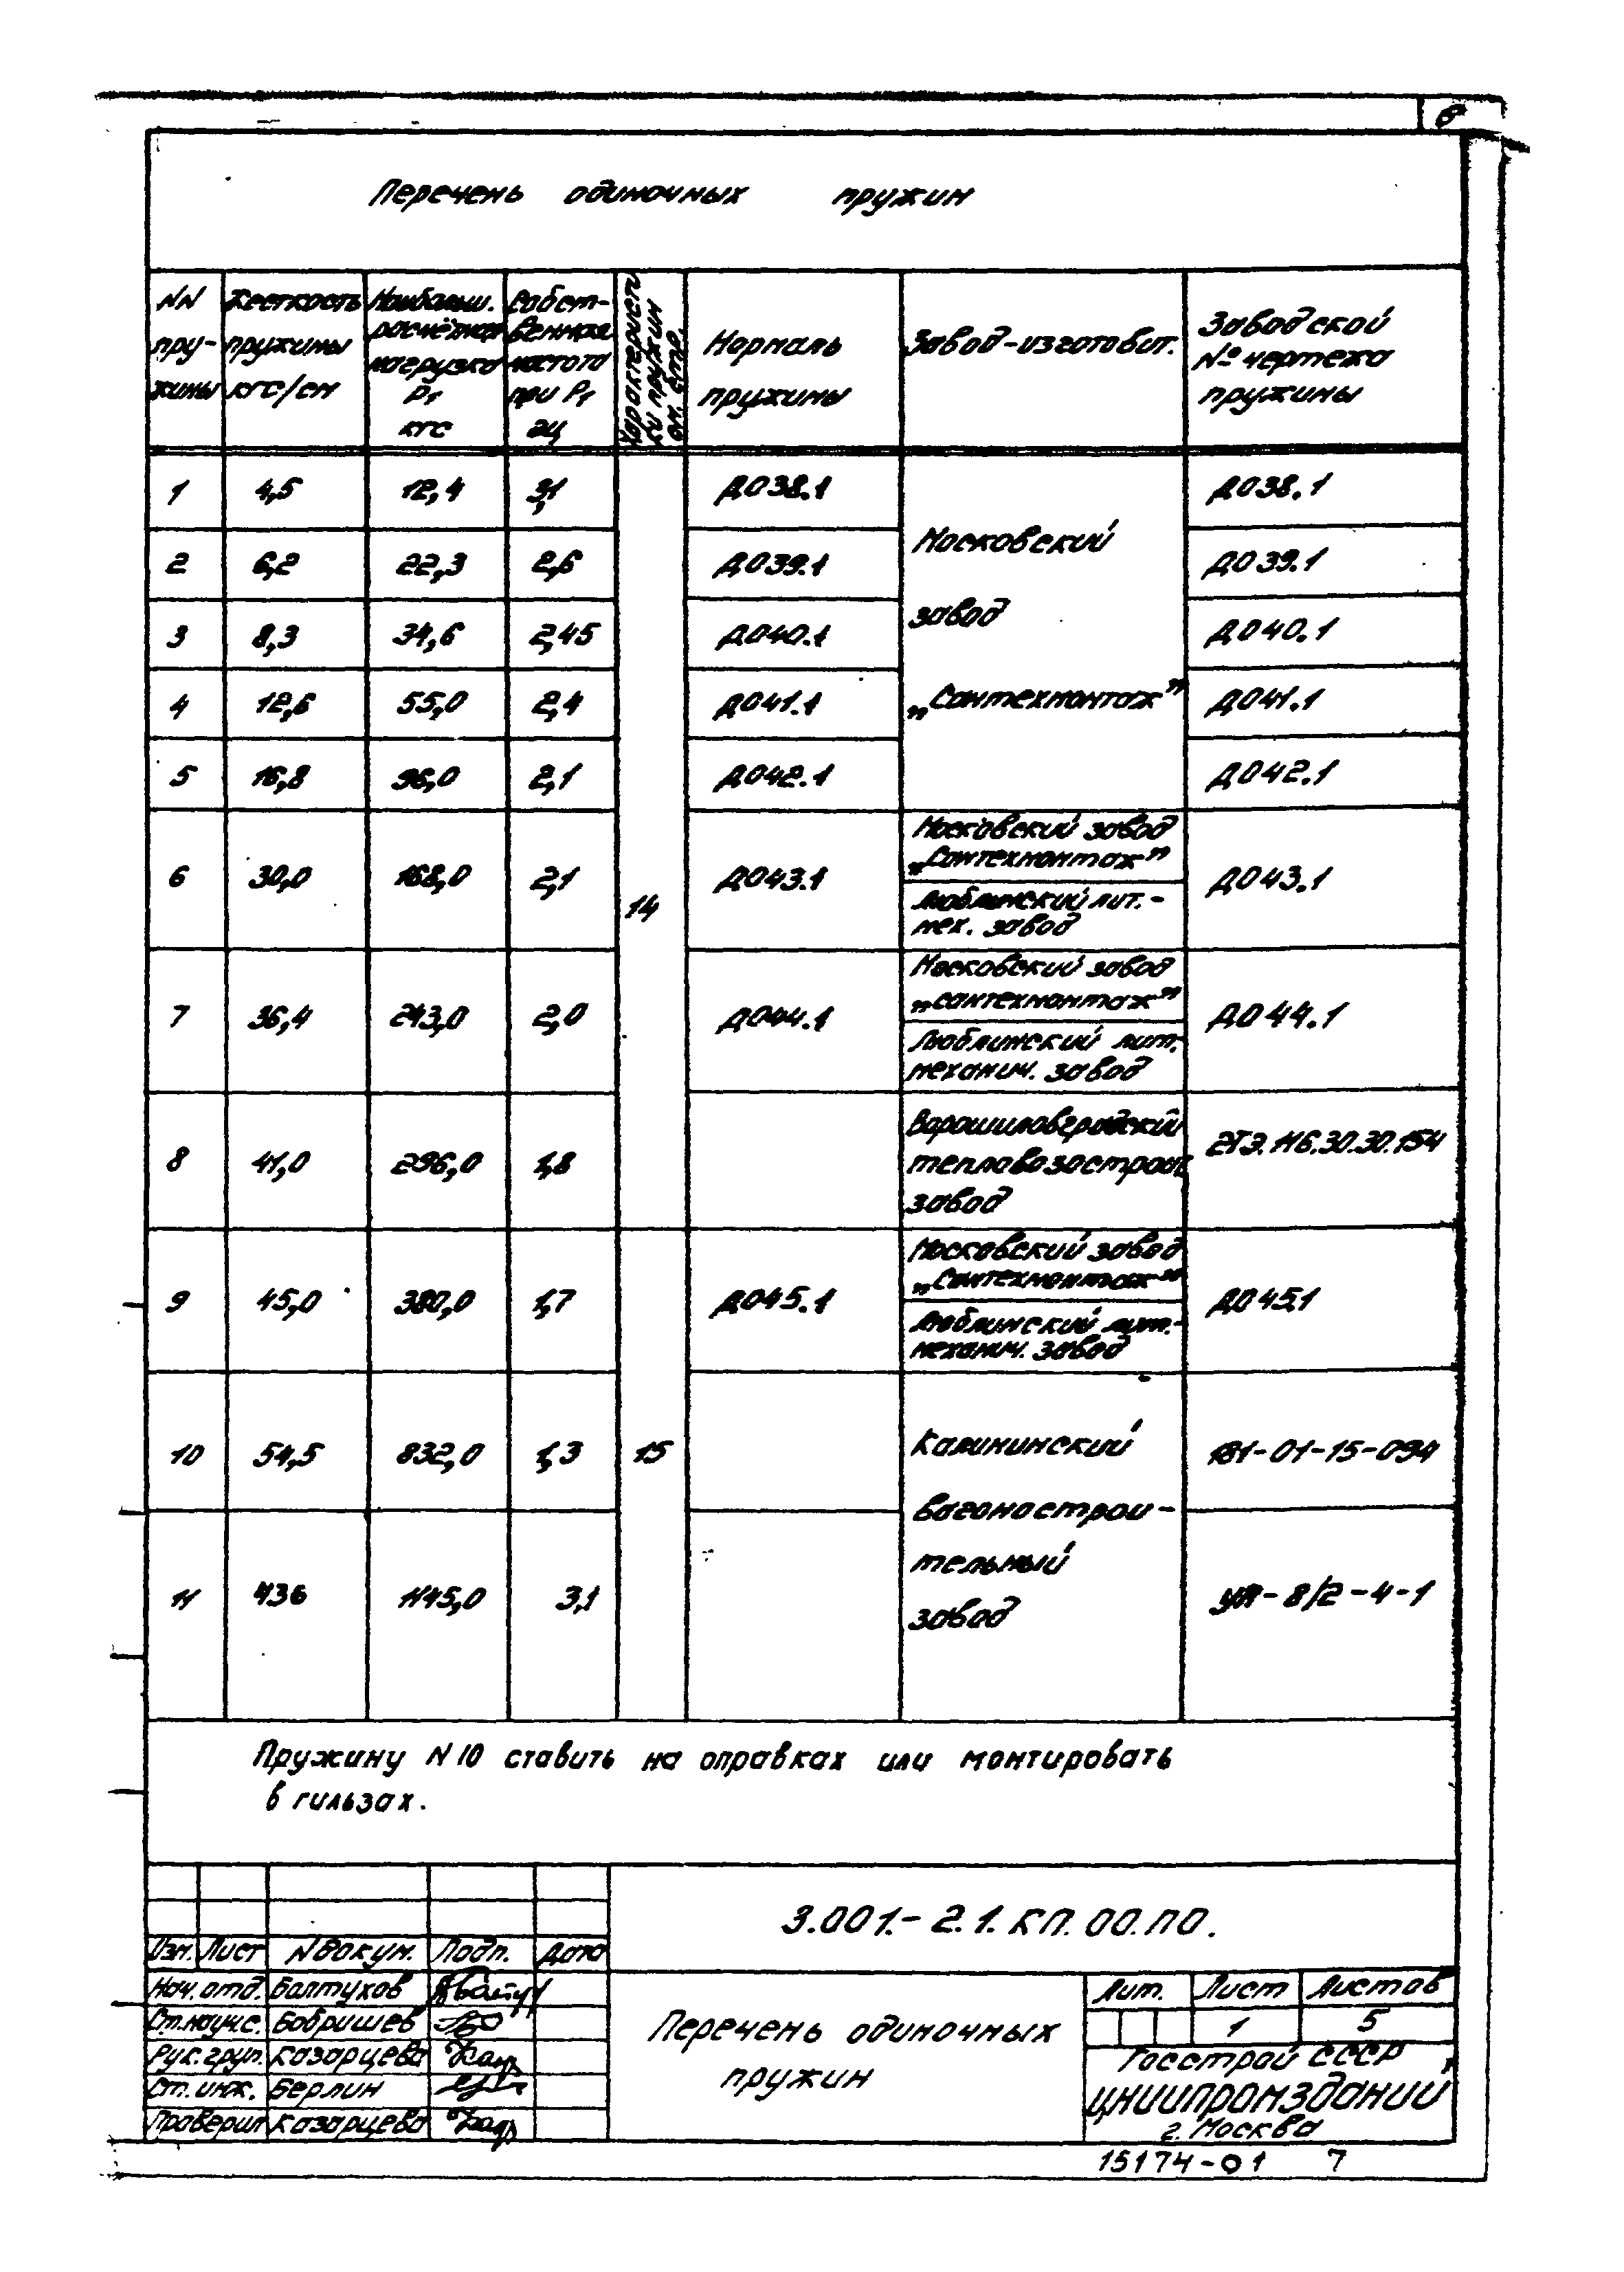 6
Перечень одиночных пружин
NN пружины
Жесткость пружины кгс/см
Наибольш. расчётная нагрузка P₁ кгс
Собственная частота при P₁ гц
Характеристики пружин см. стр.
Нормаль пружины
Завод-изготовит.
Заводской № чертежа пружины
1 4,5 12,4 3,1 ДО38.1 ДО38.1
2 6,2 22,3 2,6 ДО39.1 ДО39.1
3 8,3 34,6 2,45 ДО40.1 ДО40.1
4 12,6 55,0 2,4 ДО41.1 ДО41.1
5 16,8 96,0 2,1 ДО42.1 ДО42.1
Московский
завод
„Сантехмонтаж”
6 30,0 168,0 2,1 14 ДО43.1 ДО43.1
Московский завод
„Сантехмонтаж”
Люблинский лит.-
мех. завод
7 36,4 243,0 2,0 ДО44.1 ДО44.1
Московский завод
„сантехмонтаж”
Люблинский лит.
механич. завод
8 41,0 296,0 1,8 2ТЭ.116.30.30.154
Ворошиловградский
тепловозостроит
завод
9 45,0 380,0 1,7 ДО45.1 ДО45.1
Московский завод
„Сантехмонтаж”
Люблинский лит.-
механич. завод
10 54,5 832,0 1,3 15 181-01-15-094
11 436 1145,0 3,1 УЯ-8/2-4-1
Калининский
вагонострои-
тельный
завод
Пружину N10 ставить на оправках или монтировать
в гильзах.
3.001.-2.1. КП. 00. ПО.
Изм. Лист N докум. Подп. Дата
Нач. отд. Балтухов
Ст.научн.с. Бобришев
Рук. груп. Казарцева
Ст. инж. Берлин
Проверил Казарцева
Перечень одиночных
пружин
Лит. Лист Листов
1 5
Госстрой СССР
ЦНИИПРОМЗДАНИЙ
г. Москва
15174-01 7